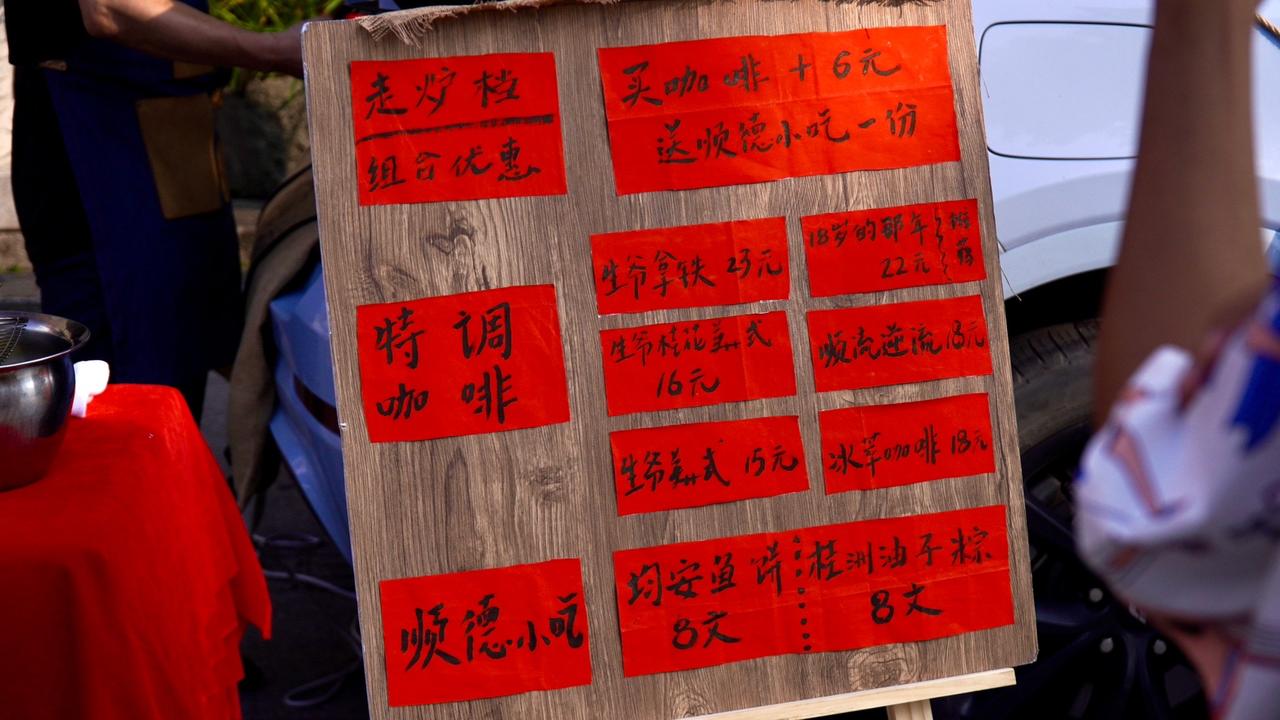 走炉档
组合优惠
买咖啡+6元
送顺德小吃一份
特调
咖啡
生爷拿铁 23元
18岁的那年
22元
生爷桂花美式
16元
顺流逆流 18元
生爷美式 15元
冰萃咖啡 18元
顺德小吃
均安鱼饼
8文
桂洲油子粽
8文